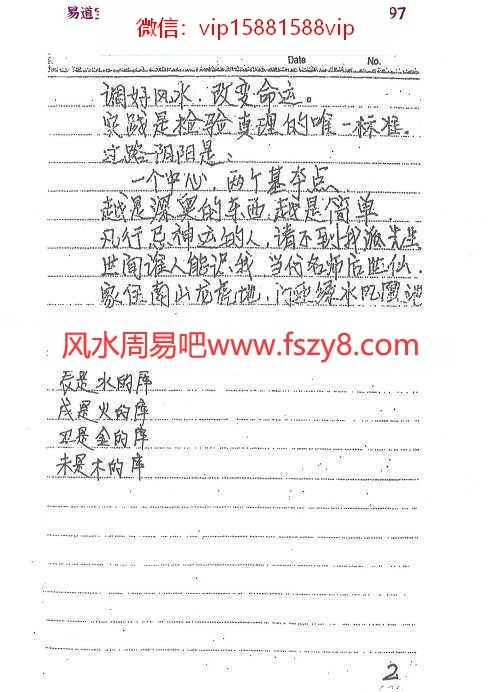 易道
97
微信：vip15881588vip
Date No.
调好风水，改变命运。
实践是检验真理的唯一标准。
过路阴阳是：
一个中心，两个基本点
越是深奥的东西，越是简单
凡行忌神运的人，请不到我派先生
世间谁人能识我，当代名师后世仙．
家住南山龙虎地，门迎绿水凤凰
风水周易吧www.fszy8.com
辰是水的库
戌是火的库
丑是金的库
未是木的库
2